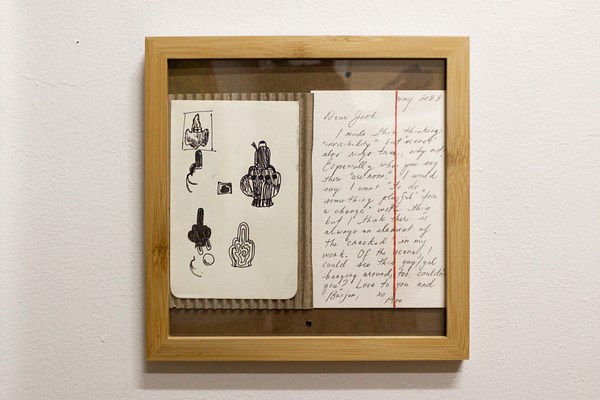 may 2008
Dear Josh
I made this thinking
"invisibility" but "occult"
also rings true, why not
Especially when you say
there "are none." I would
say I want "to do
something playful" for
a change" with this
but I think there is
always an element of
the "cracked" in my
work. Of the arsenal, I
could see this guy/gal
hanging around, too, couldn't
you? Love to you and
xo